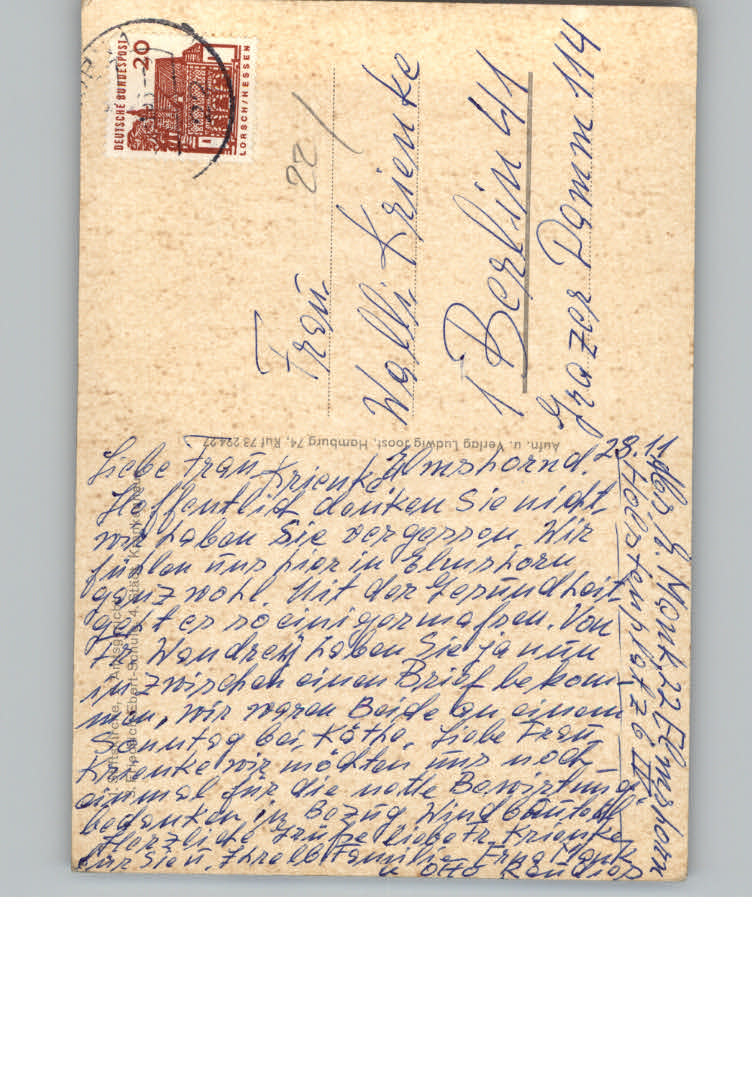 DEUTSCHE BUNDESPOST
20
LORSCH/HESSEN
22/
Frau
Walli Krienke
1 Berlin 41
Grazer Damm 114
Aufn. u. Verlag Ludwig Joost, Hamburg 74, Ruf 73 224 27
Elmshorn d. 23.11
Liebe Frau Krienke
Hoffentlich denken Sie nicht
wir haben Sie vergessen. Wir
fühlen uns hier in Elmshorn
ganz wohl. Mit der Gesundheit
geht es so einigermaßen. Von
Fr. Wandrey haben Sie ja nun
inzwischen einen Brief bekom-
men, wir waren Beide an einem
Sonntag bei Käthe. Liebe Frau
Krienke wir möchten uns noch
einmal für die nette Bewirtung
bedanken in Bezug Windbeutel
Herzliche Grüße liebe Fr. Krienke
für Sie u. Ihre lb Familie Erna Mank
u Otto
Abs. E. Mank 22 Elmshorn
Holstenplatz 6 IV
Stiftskirche, Amtsgericht
Friedrich-Ebert-Schule, 4. Städt. Krankenhaus